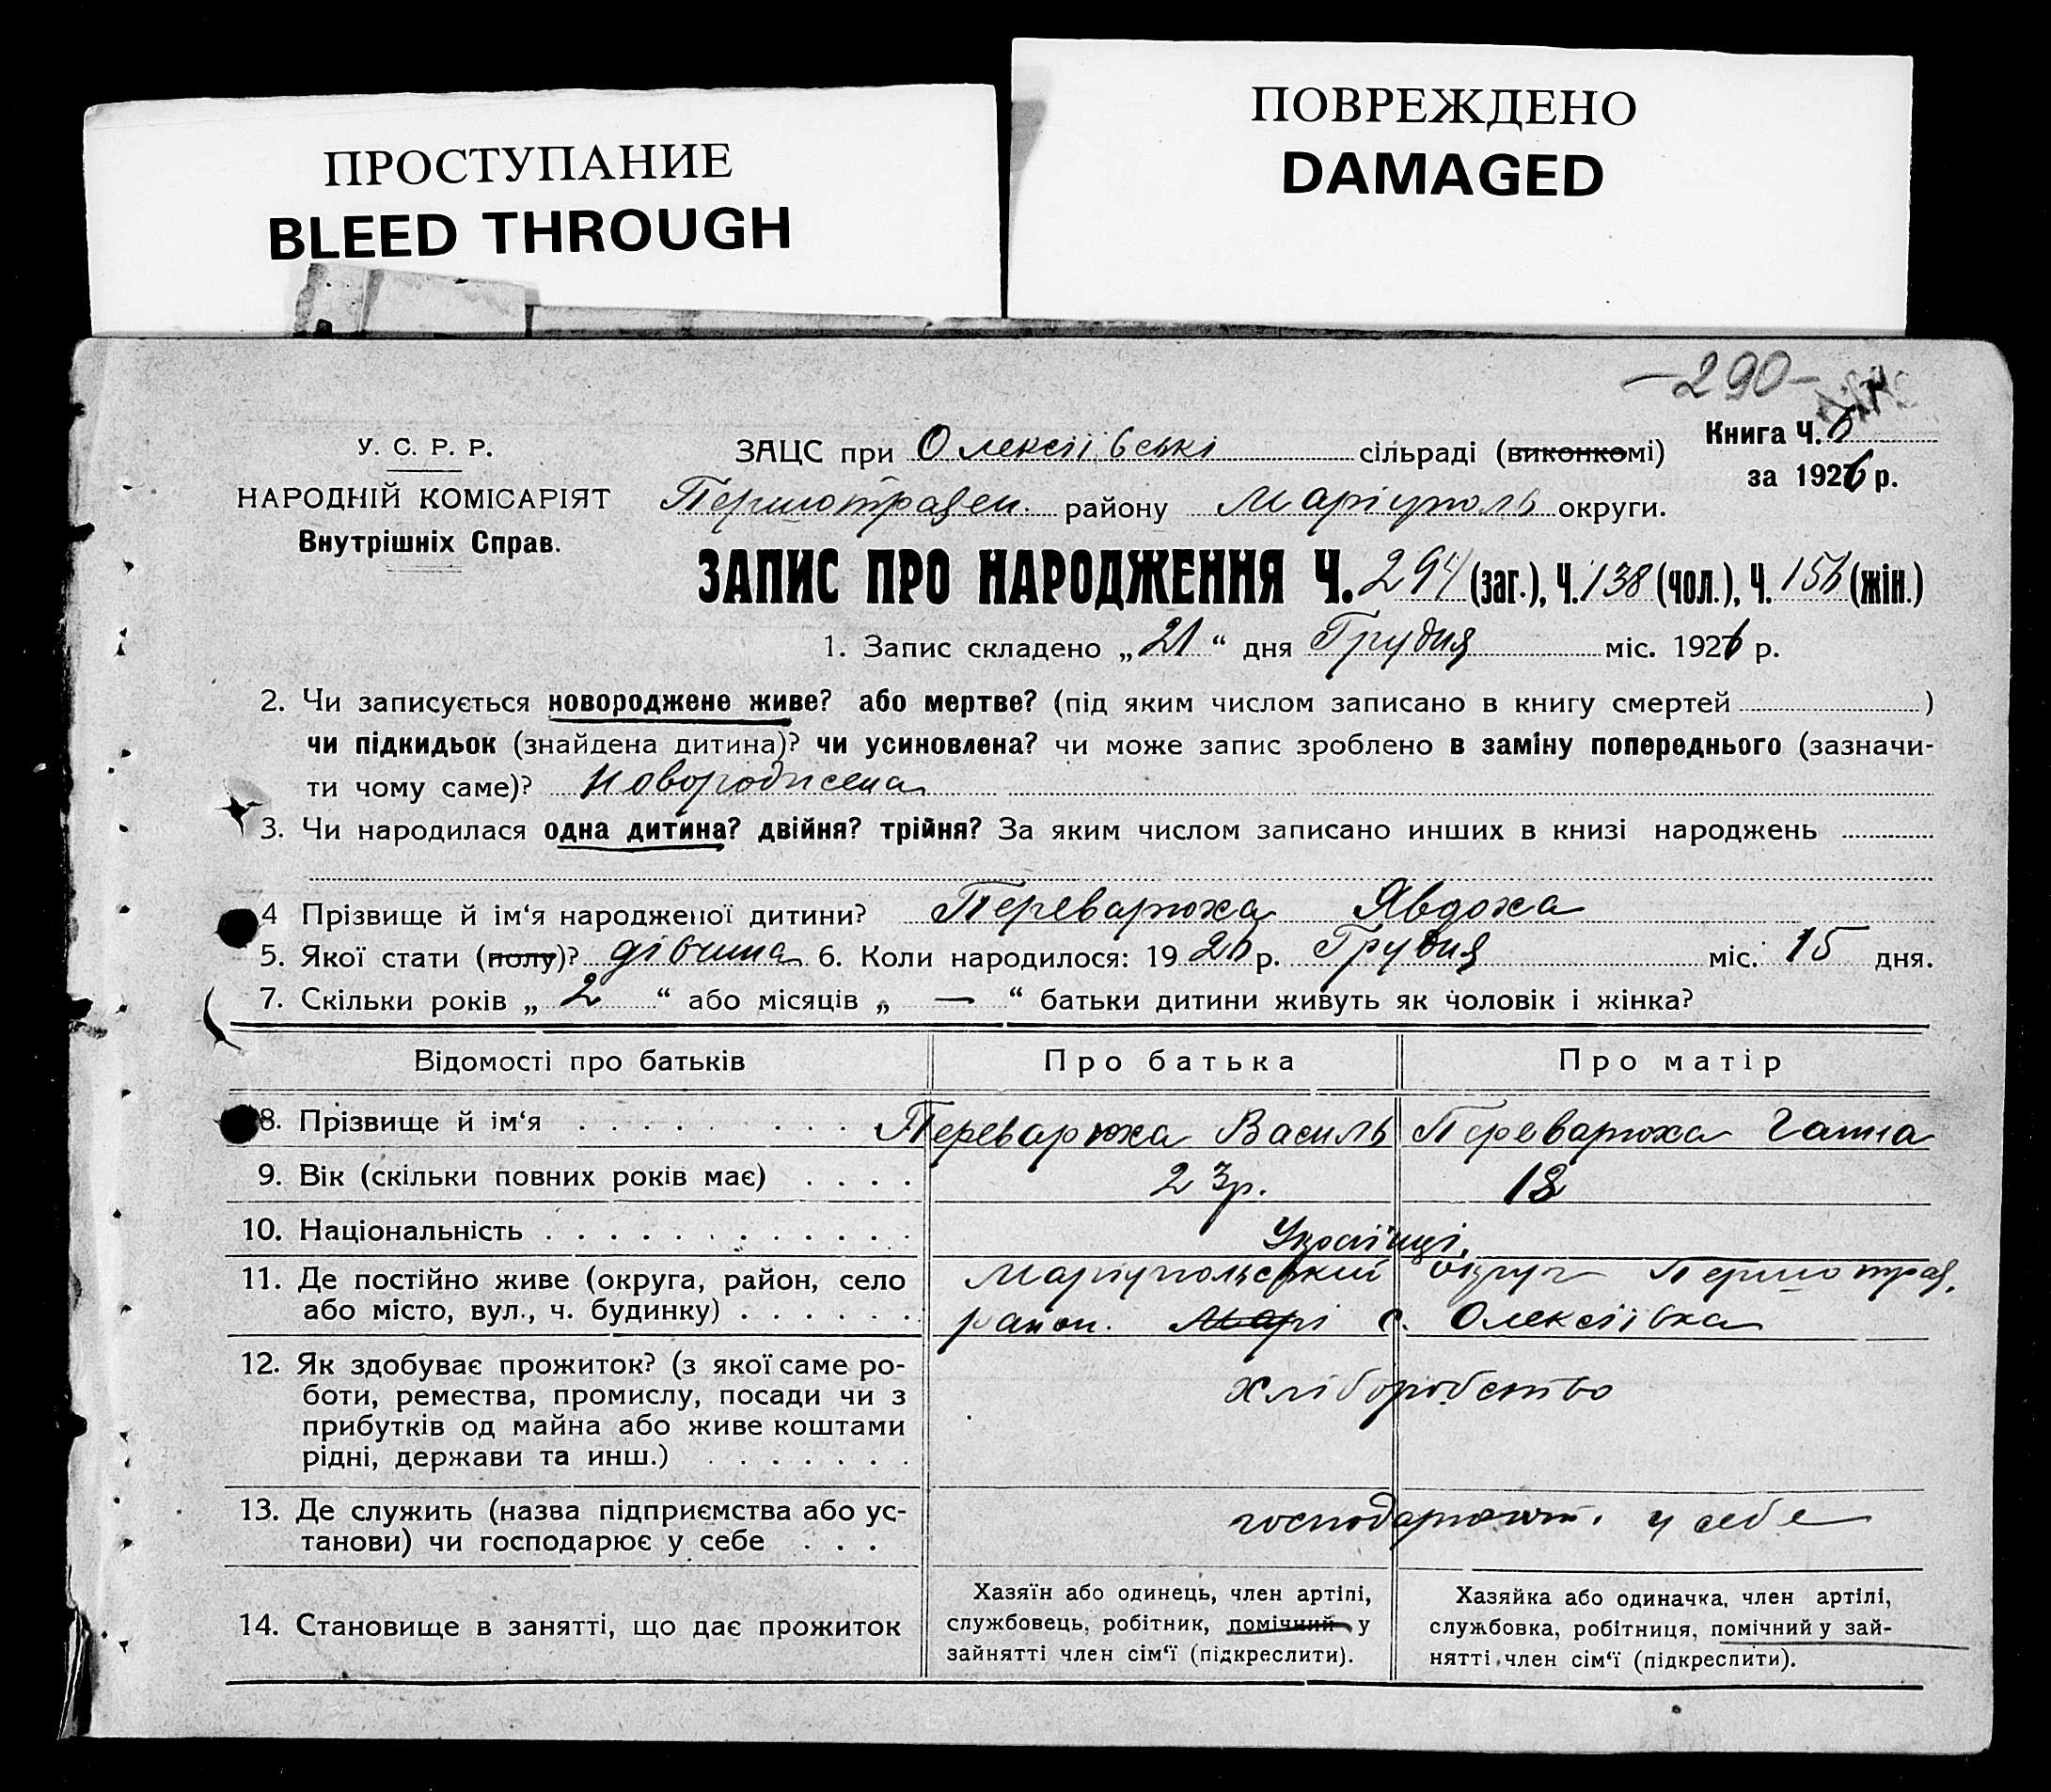 ПРОСТУПАНИЕ
BLEED THROUGH
ПОВРЕЖДЕНО
DAMAGED
-290-
У. С. Р. Р.
НАРОДНІЙ КОМІСАРІЯТ
Внутрішніх Справ.
ЗАЦС при Олексіївські сільраді (виконкомі)
Книга Ч. 6
за 1926 р.
Першотравен. району Маріуполь округи.
ЗАПИС ПРО НАРОДЖЕННЯ Ч. 294 (заг.), Ч. 138 (чол.), Ч. 156 (жін.)
1. Запис складено „21“ дня Грудня міс. 1926 р.
2. Чи записується новороджене живе? або мертве? (під яким числом записано в книгу смертей )
чи підкидьок (знайдена дитина)? чи усиновлена? чи може запис зроблено в заміну попереднього (зазначи-
ти чому саме)? Новороджена
3. Чи народилася одна дитина? двійня? трійня? За яким числом записано инших в книзі народжень
4 Прізвище й ім‘я народженої дитини? Переварюха Явдоха
5. Якої стати (полу)? дівчина 6. Коли народилося: 1926 р. Грудня міс. 15 дня.
7. Скільки років „ 2 “ або місяців „ — “ батьки дитини живуть як чоловік і жінка?
Відомості про батьків Про батька Про матір
8. Прізвище й ім‘я Переварюха Василь Переварюха Ганна
9. Вік (скільки повних років має) 23р. 18
10. Національність Українці.
11. Де постійно живе (округа, район, село Маріупольський округ Першотрав.
або місто, вул., ч. будинку) район. Марі с. Олексіївка
12. Як здобуває прожиток? (з якої саме ро-
боти, ремества, промислу, посади чи з хліборобство
прибутків од майна або живе коштами
рідні, держави та инш.)
13. Де служить (назва підприємства або ус-
танови) чи господарює у себе господарюют. у себе
14. Становище в занятті, що дає прожиток
Хазяїн або одинець, член артілі,
службовець, робітник, помічний у
зайнятті член сім‘ї (підкреслити).
Хазяйка або одиначка, член артілі,
службовка, робітниця, помічний у зай-
нятті член сім‘ї (підкреслити).